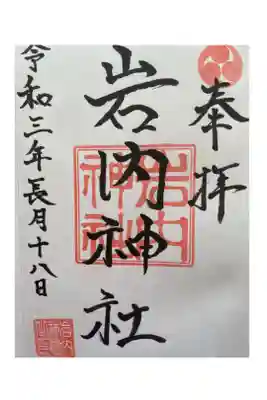 奉拝
岩内神社
岩内
神社
令和三年長月十八日